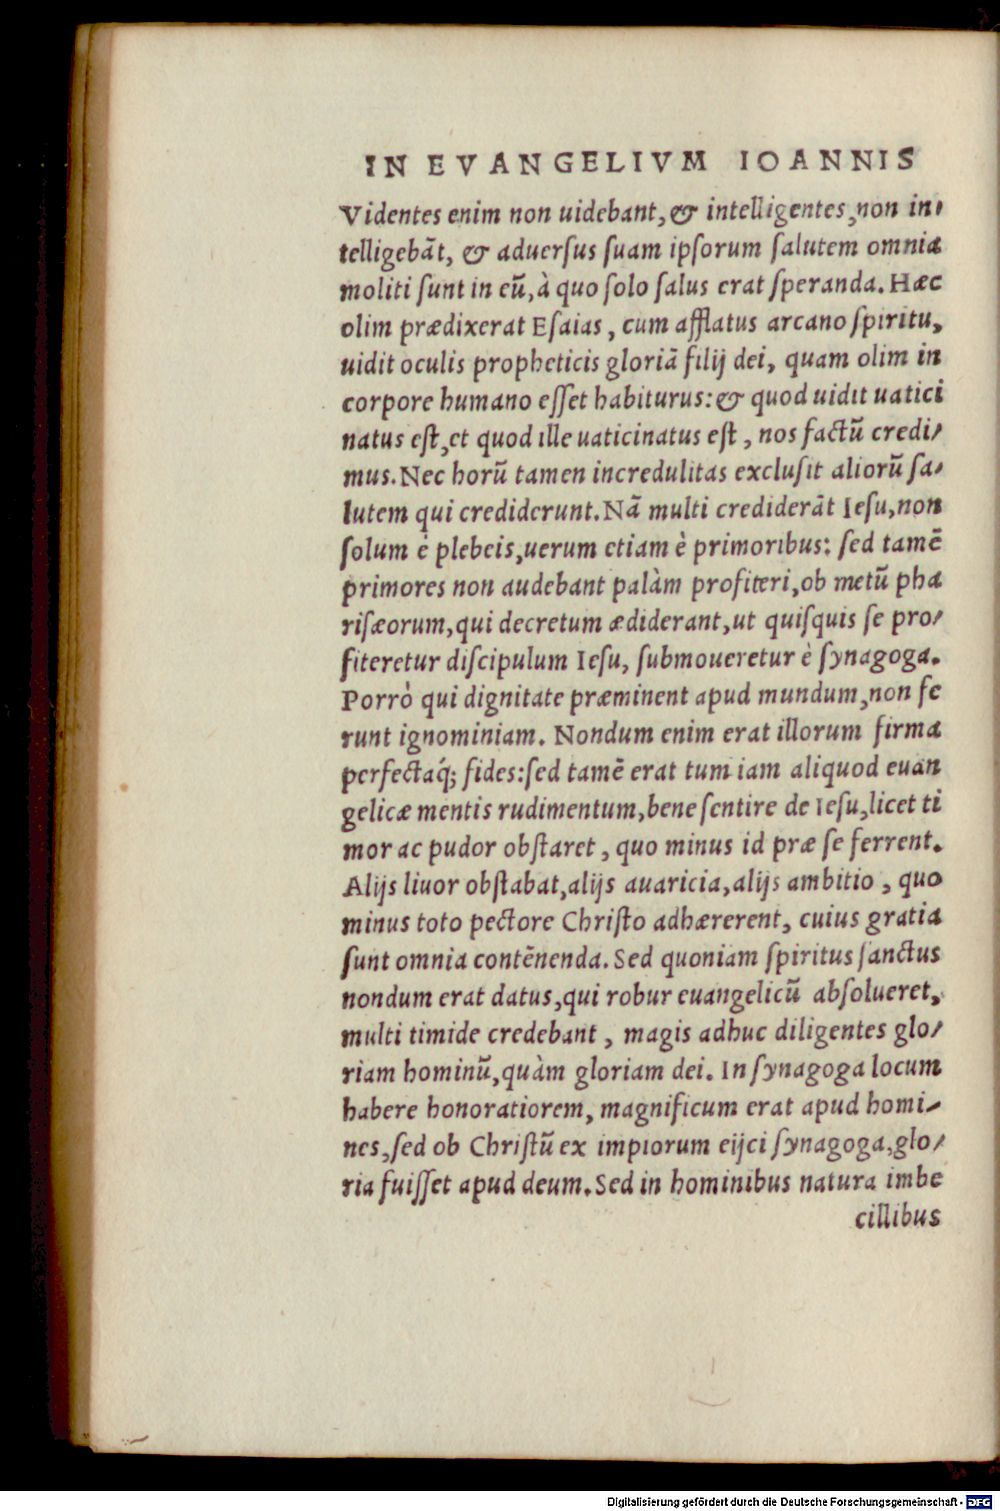 IN EVANGELIVM IOANNIS
Videntes enim non uidebant, & intelligentes, non in-
telligebāt, & aduersus suam ipsorum salutem omnia
moliti sunt in eū, à quo solo salus erat speranda. Hæc
olim prædixerat Esaias, cum afflatus arcano spiritu,
uidit oculis propheticis gloriā filij dei, quam olim in
corpore humano esset habiturus: & quod uidit uatici
natus est, et quod ille uaticinatus est, nos factū credi/
mus. Nec horū tamen incredulitas exclusit aliorū sa/
lutem qui crediderunt. Nā multi crediderāt Iesu, non
solum è plebeis, uerum etiam è primoribus: sed tamē
primores non audebant palàm profiteri, ob metū pha
risæorum, qui decretum ædiderant, ut quisquis se pro/
fiteretur discipulum Iesu, submoueretur è synagoga.
Porrò qui dignitate præminent apud mundum, non fe
runt ignominiam. Nondum enim erat illorum firma
perfectaq́; fides: sed tamē erat tum iam aliquod euan
gelicæ mentis rudimentum, bene sentire de Iesu, licet ti
mor ac pudor obstaret, quo minus id præ se ferrent.
Alijs liuor obstabat, alijs auaricia, alijs ambitio, quo
minus toto pectore Christo adhærerent, cuius gratia
sunt omnia contēnenda. Sed quoniam spiritus sanctus
nondum erat datus, qui robur euangelicū absolueret,
multi timide credebant, magis adhuc diligentes glo/
riam hominū, quàm gloriam dei. In synagoga locum
habere honoratiorem, magnificum erat apud homi-
nes, sed ob Christū ex impiorum eijci synagoga, glo/
ria fuisset apud deum. Sed in hominibus natura imbe
cillibus
Digitalisierung gefördert durch die Deutsche Forschungsgemeinschaft - DFG